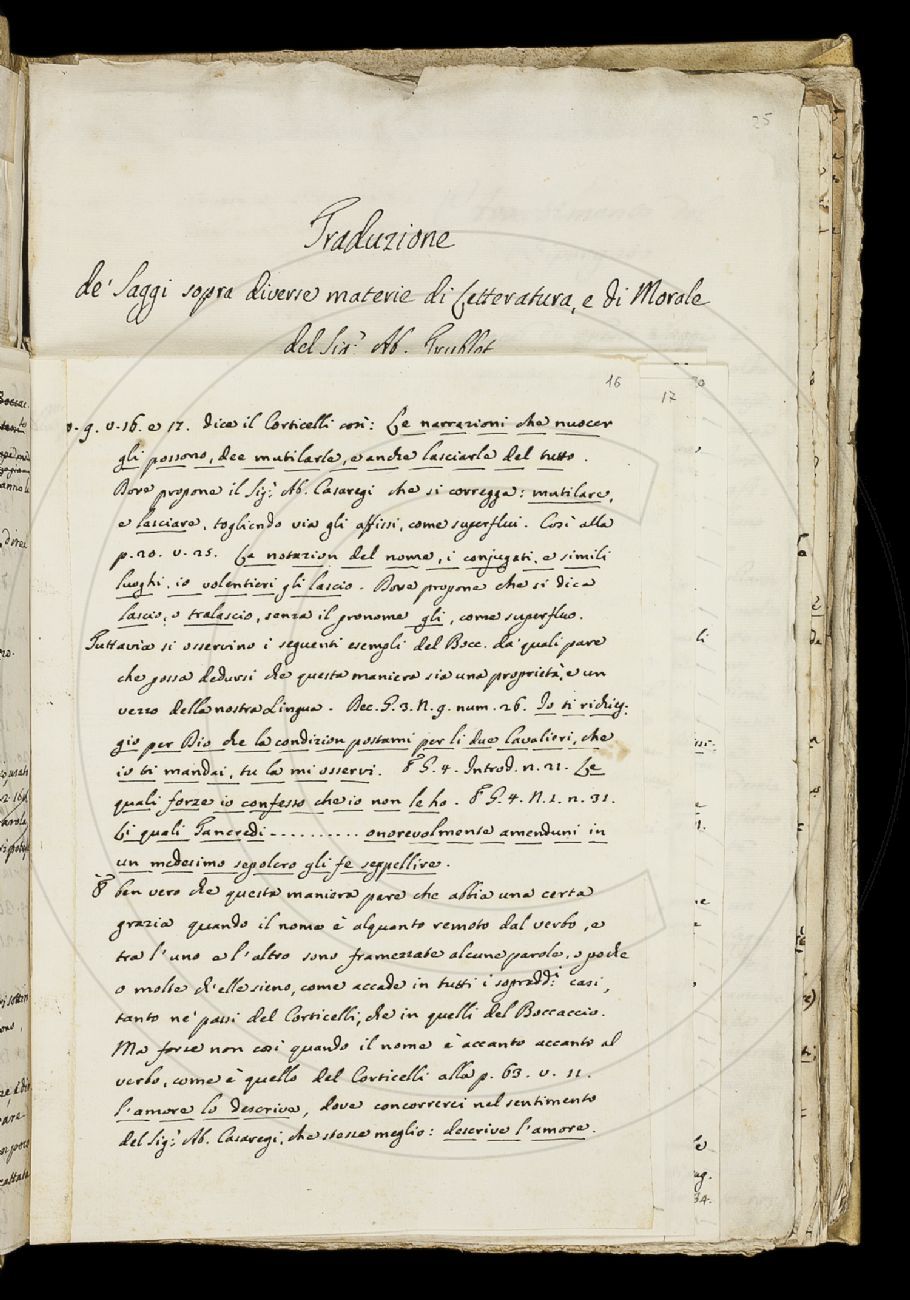 25
Traduzione
de' Saggi sopra diverse materie di Letteratura, e di Morale
del Sig.r Ab. Trublet
16
17
p. 9. v. 16. e 17. dice il Corticelli così: Le narrazioni che nuocer
gli possono, dee mutilarle, e anche lasciarle del tutto.
Dove propone il Sig.r Ab. Casaregi che si corregga: mutilare,
e lasciare, togliendo via gli affissi, come superflui. Così alla
p. 20. v. 25. La notazion del nome, i conjugati, e simili
luoghi, io volentieri gli lascio. Dove propone che si dica
lascio, o tralascio, senza il pronome gli, come superfluo.
Tuttavia si osservino i seguenti esempli del Bocc. da' quali pare
che possa dedursi che questa maniera sia una proprietà, e un
vezzo della nostra Lingua. Dec. G. 3. N. 9. num. 26. Io ti richieg-
gio per Dio che la condizion postami per li due Cavalieri, che
io ti mandai, tu la mi osservi. E G. 4. Introd. n. 21. Le
quali forze io confesso che io non le ho. E G. 4. N. 1. n. 31.
Li quali Tancredi .......... onorevolmente amenduni in
un medesimo sepolcro gli fe seppellire.
È ben vero che questa maniera pare che abbia una certa
grazia quando il nome è alquanto remoto dal verbo, e
tra l'uno e l'altro sono framezzate alcune parole, o poche
o molte ch'elle sieno, come accade in tutti i sopradd.i casi,
tanto ne' passi del Corticelli, che in quelli del Boccaccio.
Ma forse non così quando il nome è accanto accanto al
verbo, come è quello del Corticelli alla p. 63. v. 11.
l'amore lo descrive, dove concorrerei nel sentimento
del Sig.r Ab. Casaregi, che stesse meglio: descrive l'amore.